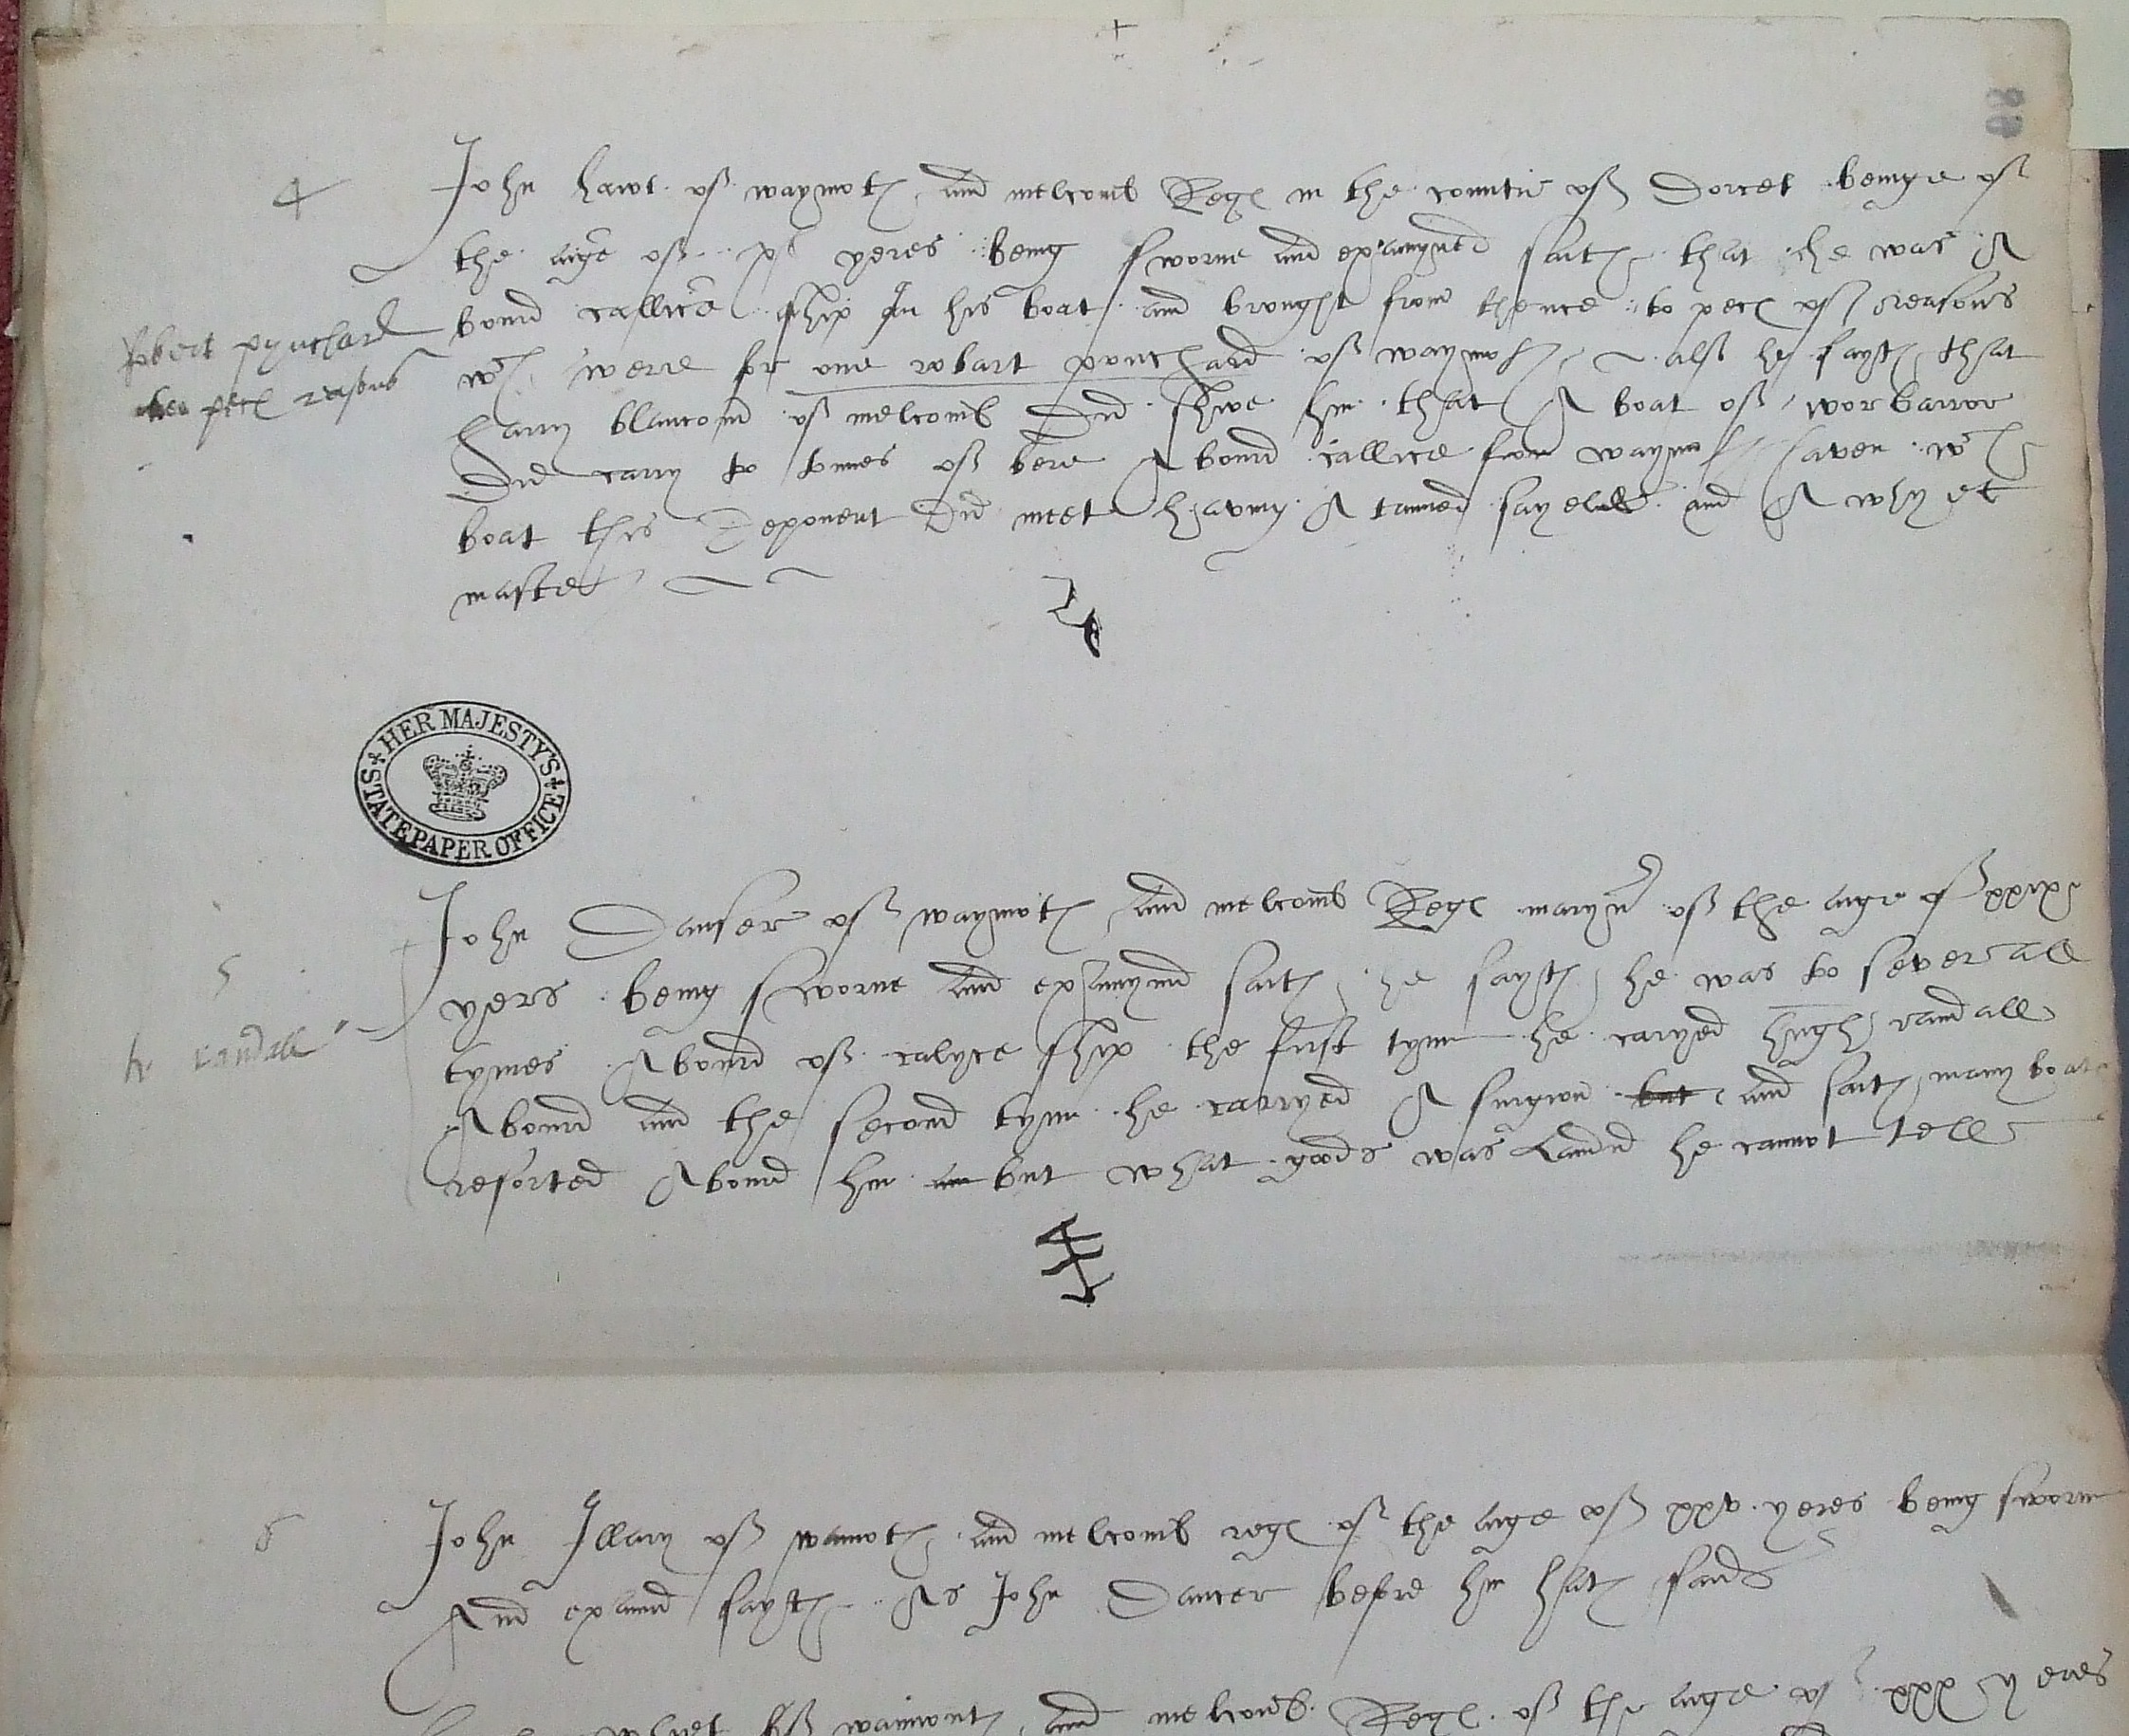 88
4
John hawt of waymoth and melcomb Regs in the countie of Dorcet beinge of
the aige of xl yeres being sworne and examyned saith that he was A
bourd callice ship In his boat and brought from thence to pecs of reasons
Robert pynchard
pecs reasons
wch were for one robart pounchard of waymoth also he sayth that
harry blancord of melcomb Did shwe him that A boat of worbarrow
Did carry to tunnes of bere A bourd callice from waymoth haven wch
boat this Deponent Did meet haveng A tanned sayele and A whyet
master
HER MAJESTY'S STATE PAPER OFFICE
5
John Danser of waymoth and melcomb Regs maryner of the aige of xxix
yers being sworne and examynd saith he sayth he was to severall
h Randall
tymes A bourd of calyce ship the first tyme he caryed hugh randall
A bourd and the second tyme he carryed A surgion but and saith many boats
resorted A bourd him but what goods was Landid he cannot tell
6
John Illary of wamoth and melcomb regs of the aige of xxv yeres being sworn
And examd sayth As John Dancer before him hath said
of waimouth and melcomb Regs of the aige of xxx yeres